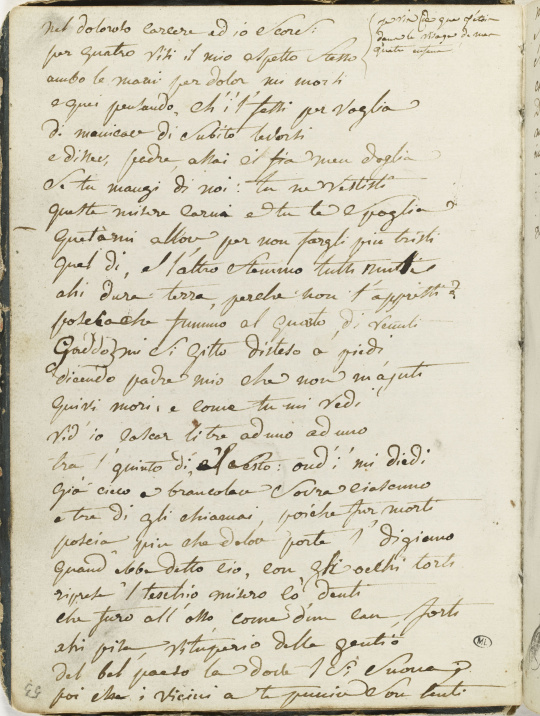 nel doloroso carcere ad io scorsi
per quatro visi il mio aspetto stesso
ambo le mani per dolor mi morsi
e quei pensando, ch'i'l fessi per voglia
di manicare di subito levorsi
e disser, padre assai ci fia men doglia
se tu mangi di noi: tu ne vestisti
queste misere carni e tu le spoglia
Quetàmi allor per non fargli piu tristi
quel di, e l'altro stemmo tutti muti
ahi dura terra, perche non t'apristi?
poscia che fummo al quarto di venuti
Gaddo mi si gitto disteso a piedi
dicendo padre mio che non m'ajuti
quivi mori, e come tu mi vedi
vid' io cascar li tre ad uno ad uno
tra 'l quinto di, e'l sesto: ond' i' mi diedi
già cieco a brancolare sovra ciascuno
e tre di gli chiamai, poiche fur morti
poscia piu che dolor pote 'l digiuno
quand' ebbe detto cio, con gli occhi torti
riprese 'l teschio misero co' denti
che furo all' osso come d'un can, forti
ahi pisa, vituperio delle genti
del bel paese la dove 'l si suona,
poi che i vicini a te punir son lenti
ML